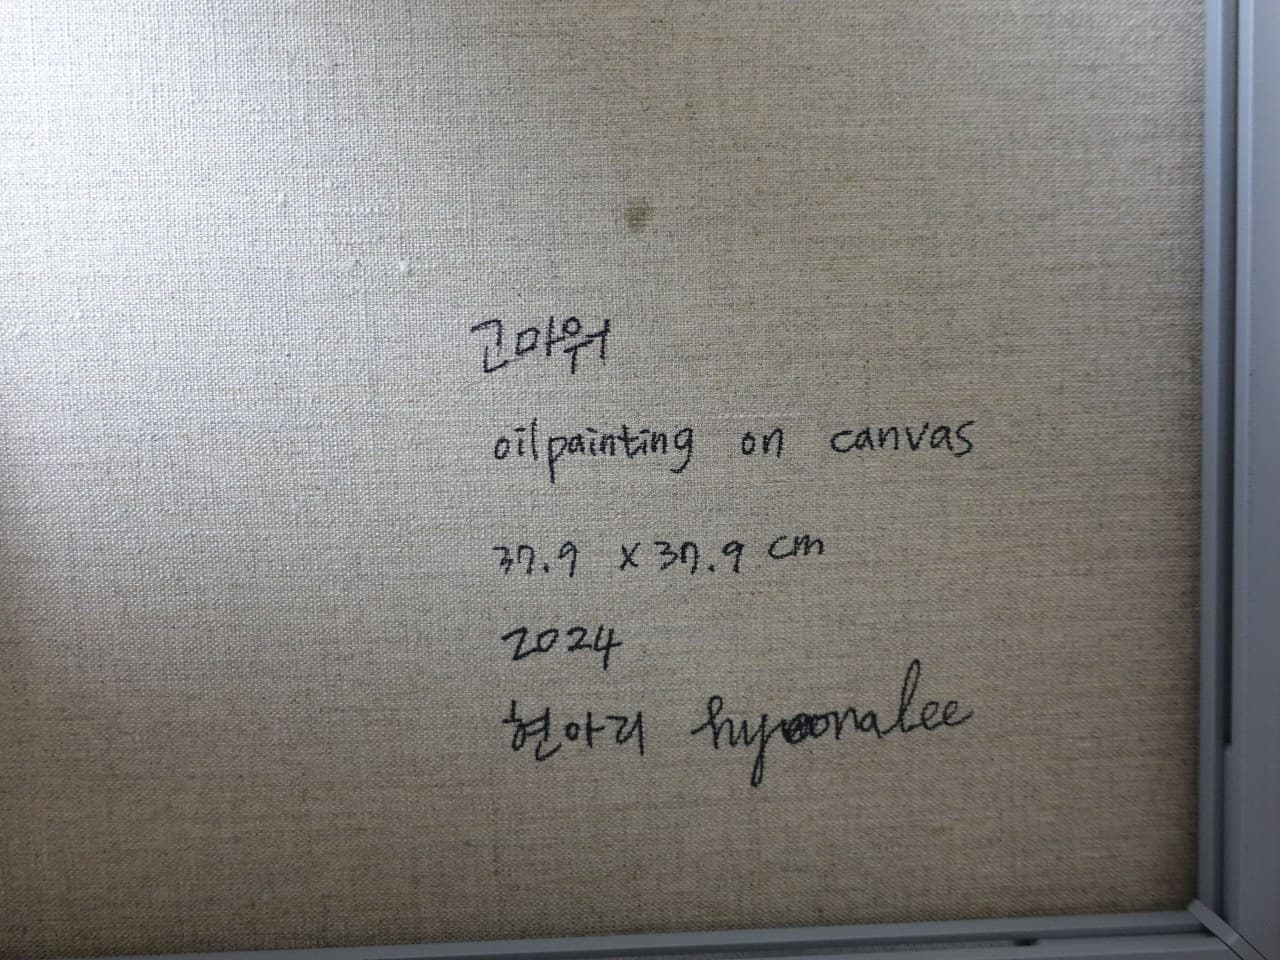 고마워
oilpainting on canvas
37.9 x 37.9 cm
2024
현아리 hyeonalee